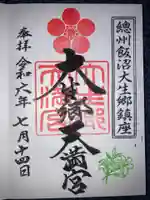 總州飯沼大生郷鎮座
大生郷天満宮
奉拝
令和六年七月十四日